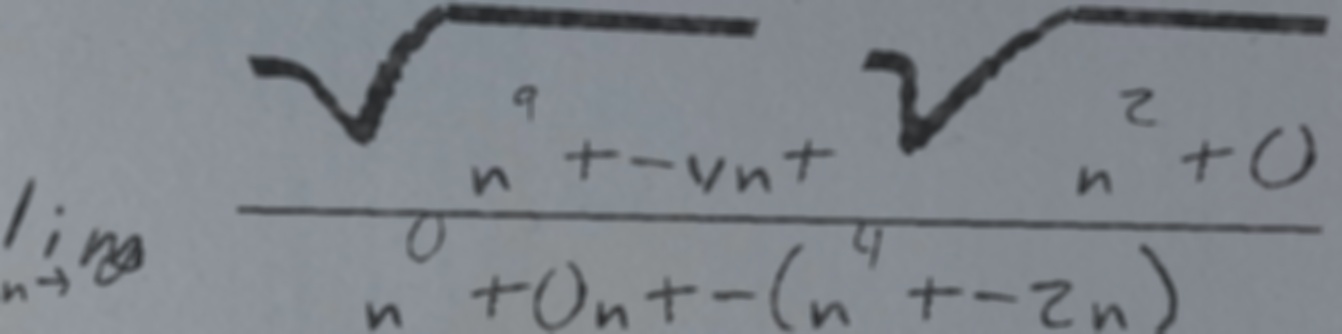 lim n→∞ (√(n^9 + -4n) + √(n^2 + 0)) / (n^0 + 0n + -(n^4 + -2n))